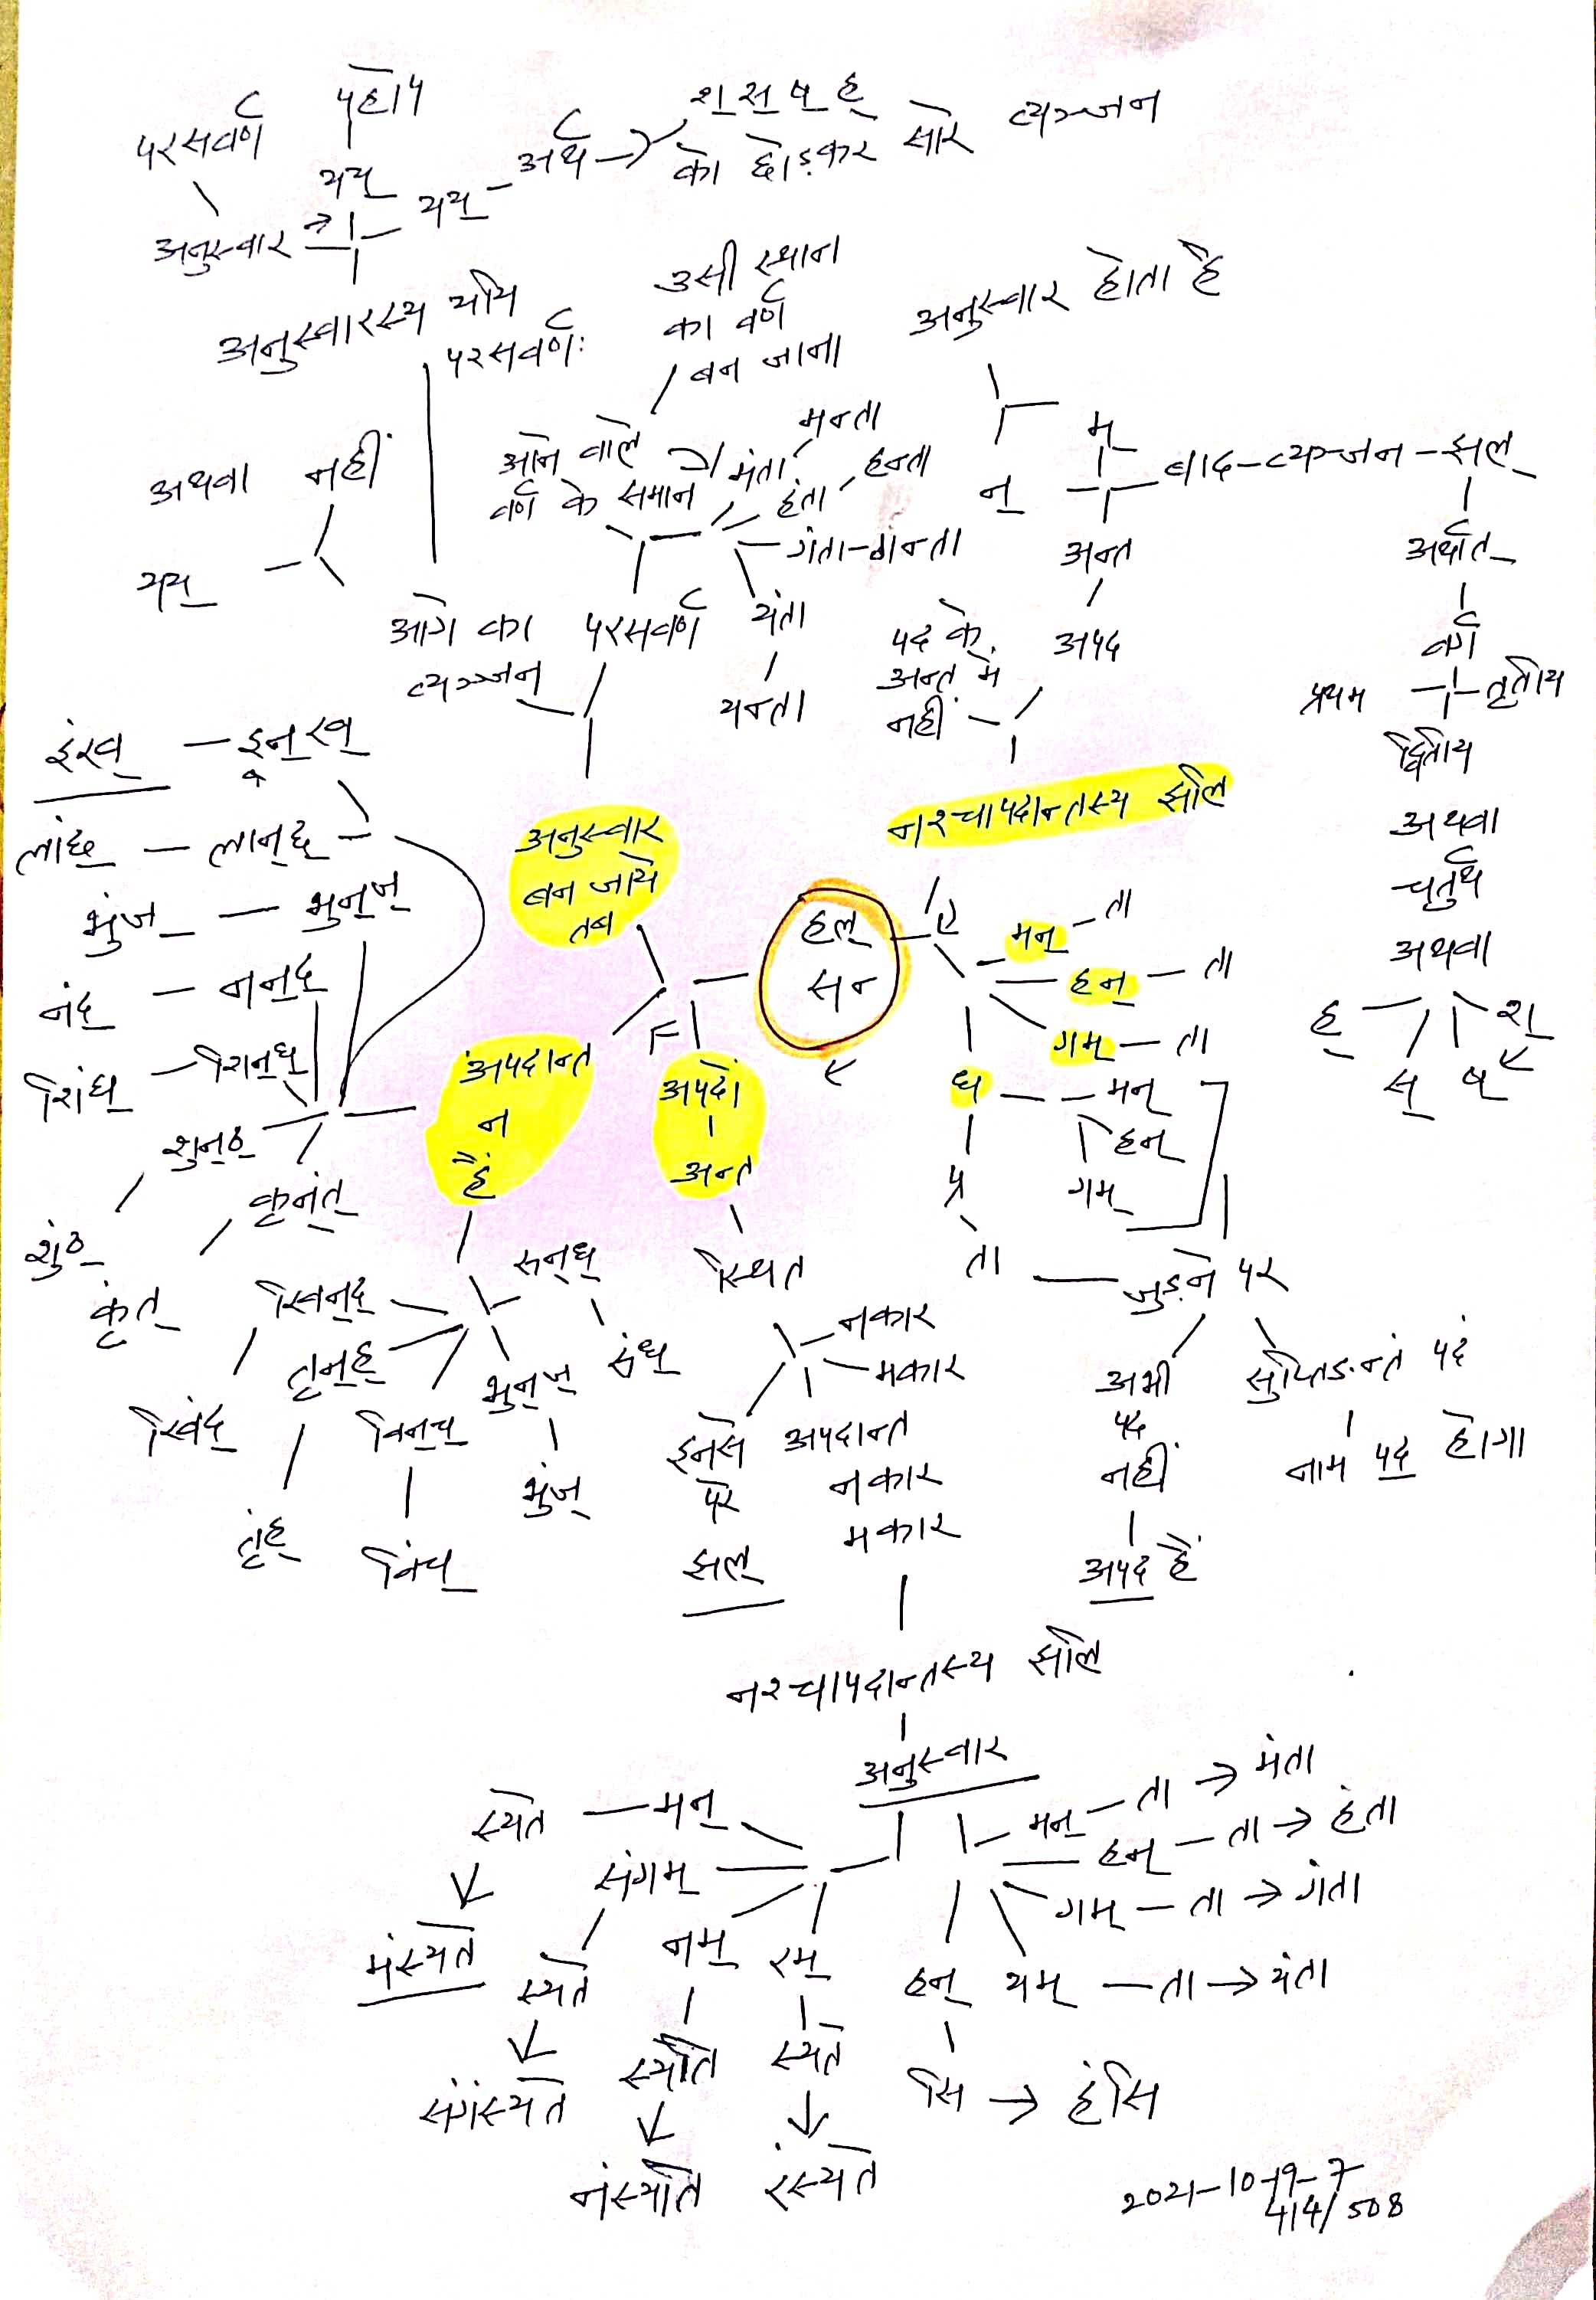 परसवर्ण
परे हो
यय्
अनुस्वार → यय् - अर्थ →
श् स् ष् ह्
को छोड़कर सारे व्यञ्जन
अनुस्वारस्य ययि
परसवर्णः
उसी स्थान
का वर्ण
बन जाना
अनुस्वार होता है
अथवा नहीं
यय्
आने वाले
वर्ण के समान
मंता मन्ता
हंता हन्ता
गंता-गन्ता
यंता
यन्ता
म्
न्
बाद-व्यञ्जन-झल्
अन्त
अपद
पद के
अन्त में
नहीं
अर्थात्
वर्ग
प्रथम तृतीय
द्वितीय
अथवा
चतुर्थ
अथवा
ह् स् ष् श्
आगे का
व्यञ्जन
परसवर्ण
इंख् - इन्ख्
लांछ् - लान्छ्
भुंज् - भुन्ज्
नंद् - नन्द्
शिंघ् - शिन्घ्
शुन्ठ्
शुंठ्
कृन्त्
कृंत्
अनुस्वार
बन जाये
तब
नश्चापदान्तस्य झलि
हल्
सन्
मन् - ता
हन् - ता
गम् - ता
मन्
हन्
गम्
ता
जुड़ने पर
अपदान्त
न
हैं
अपदे
अन्त
स्थित
नकार
मकार
अपदान्त
नकार
मकार
इनसे
परे
झल्
अभी
पद
नहीं
अपद है
सुप्तिङन्तं पदं
नाम पद होगा
सन्ध्
संध्
खिन्द्
खिंद्
तृन्ह्
तृंह्
भुन्ज्
भुंज्
नश्चापदान्तस्य झलि
अनुस्वार
स्यते - मन्
मंस्यते
संगम्
स्यते
संगंस्यते
नम्
स्यति
नंस्यति
रम्
स्यते
रंस्यते
मन् - ता → मंता
हन् - ता → हंता
गम् - ता → गंता
यम् - ता → यंता
हन्
सि → हंसि
2021-10-19-7
414/508